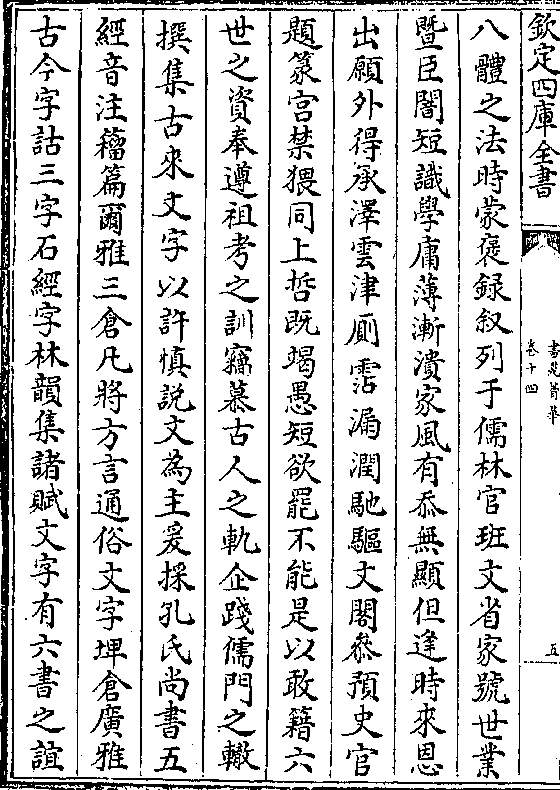 欽定四庫全書
書苑菁華
卷十四
五
八體之法時蒙褒録叙列于儒林官班文省家號世業
暨臣闇短識學庸薄漸漬家風有忝無顯但逢時來恩
出願外得承澤雲津厠霑漏潤馳驅文閣叅預史官
題篆宫禁猥同上哲既竭愚短欲罷不能是以敢籍六
世之資奉遵祖考之訓竊慕古人之軌企踐儒門之轍
撰集古來文字以許慎説文為主爰採孔氏尚書五
經音注籀篇爾雅三倉凡將方言通俗文字埤倉廣雅
古今字詁三字石經字林韻集諸賦文字有六書之誼